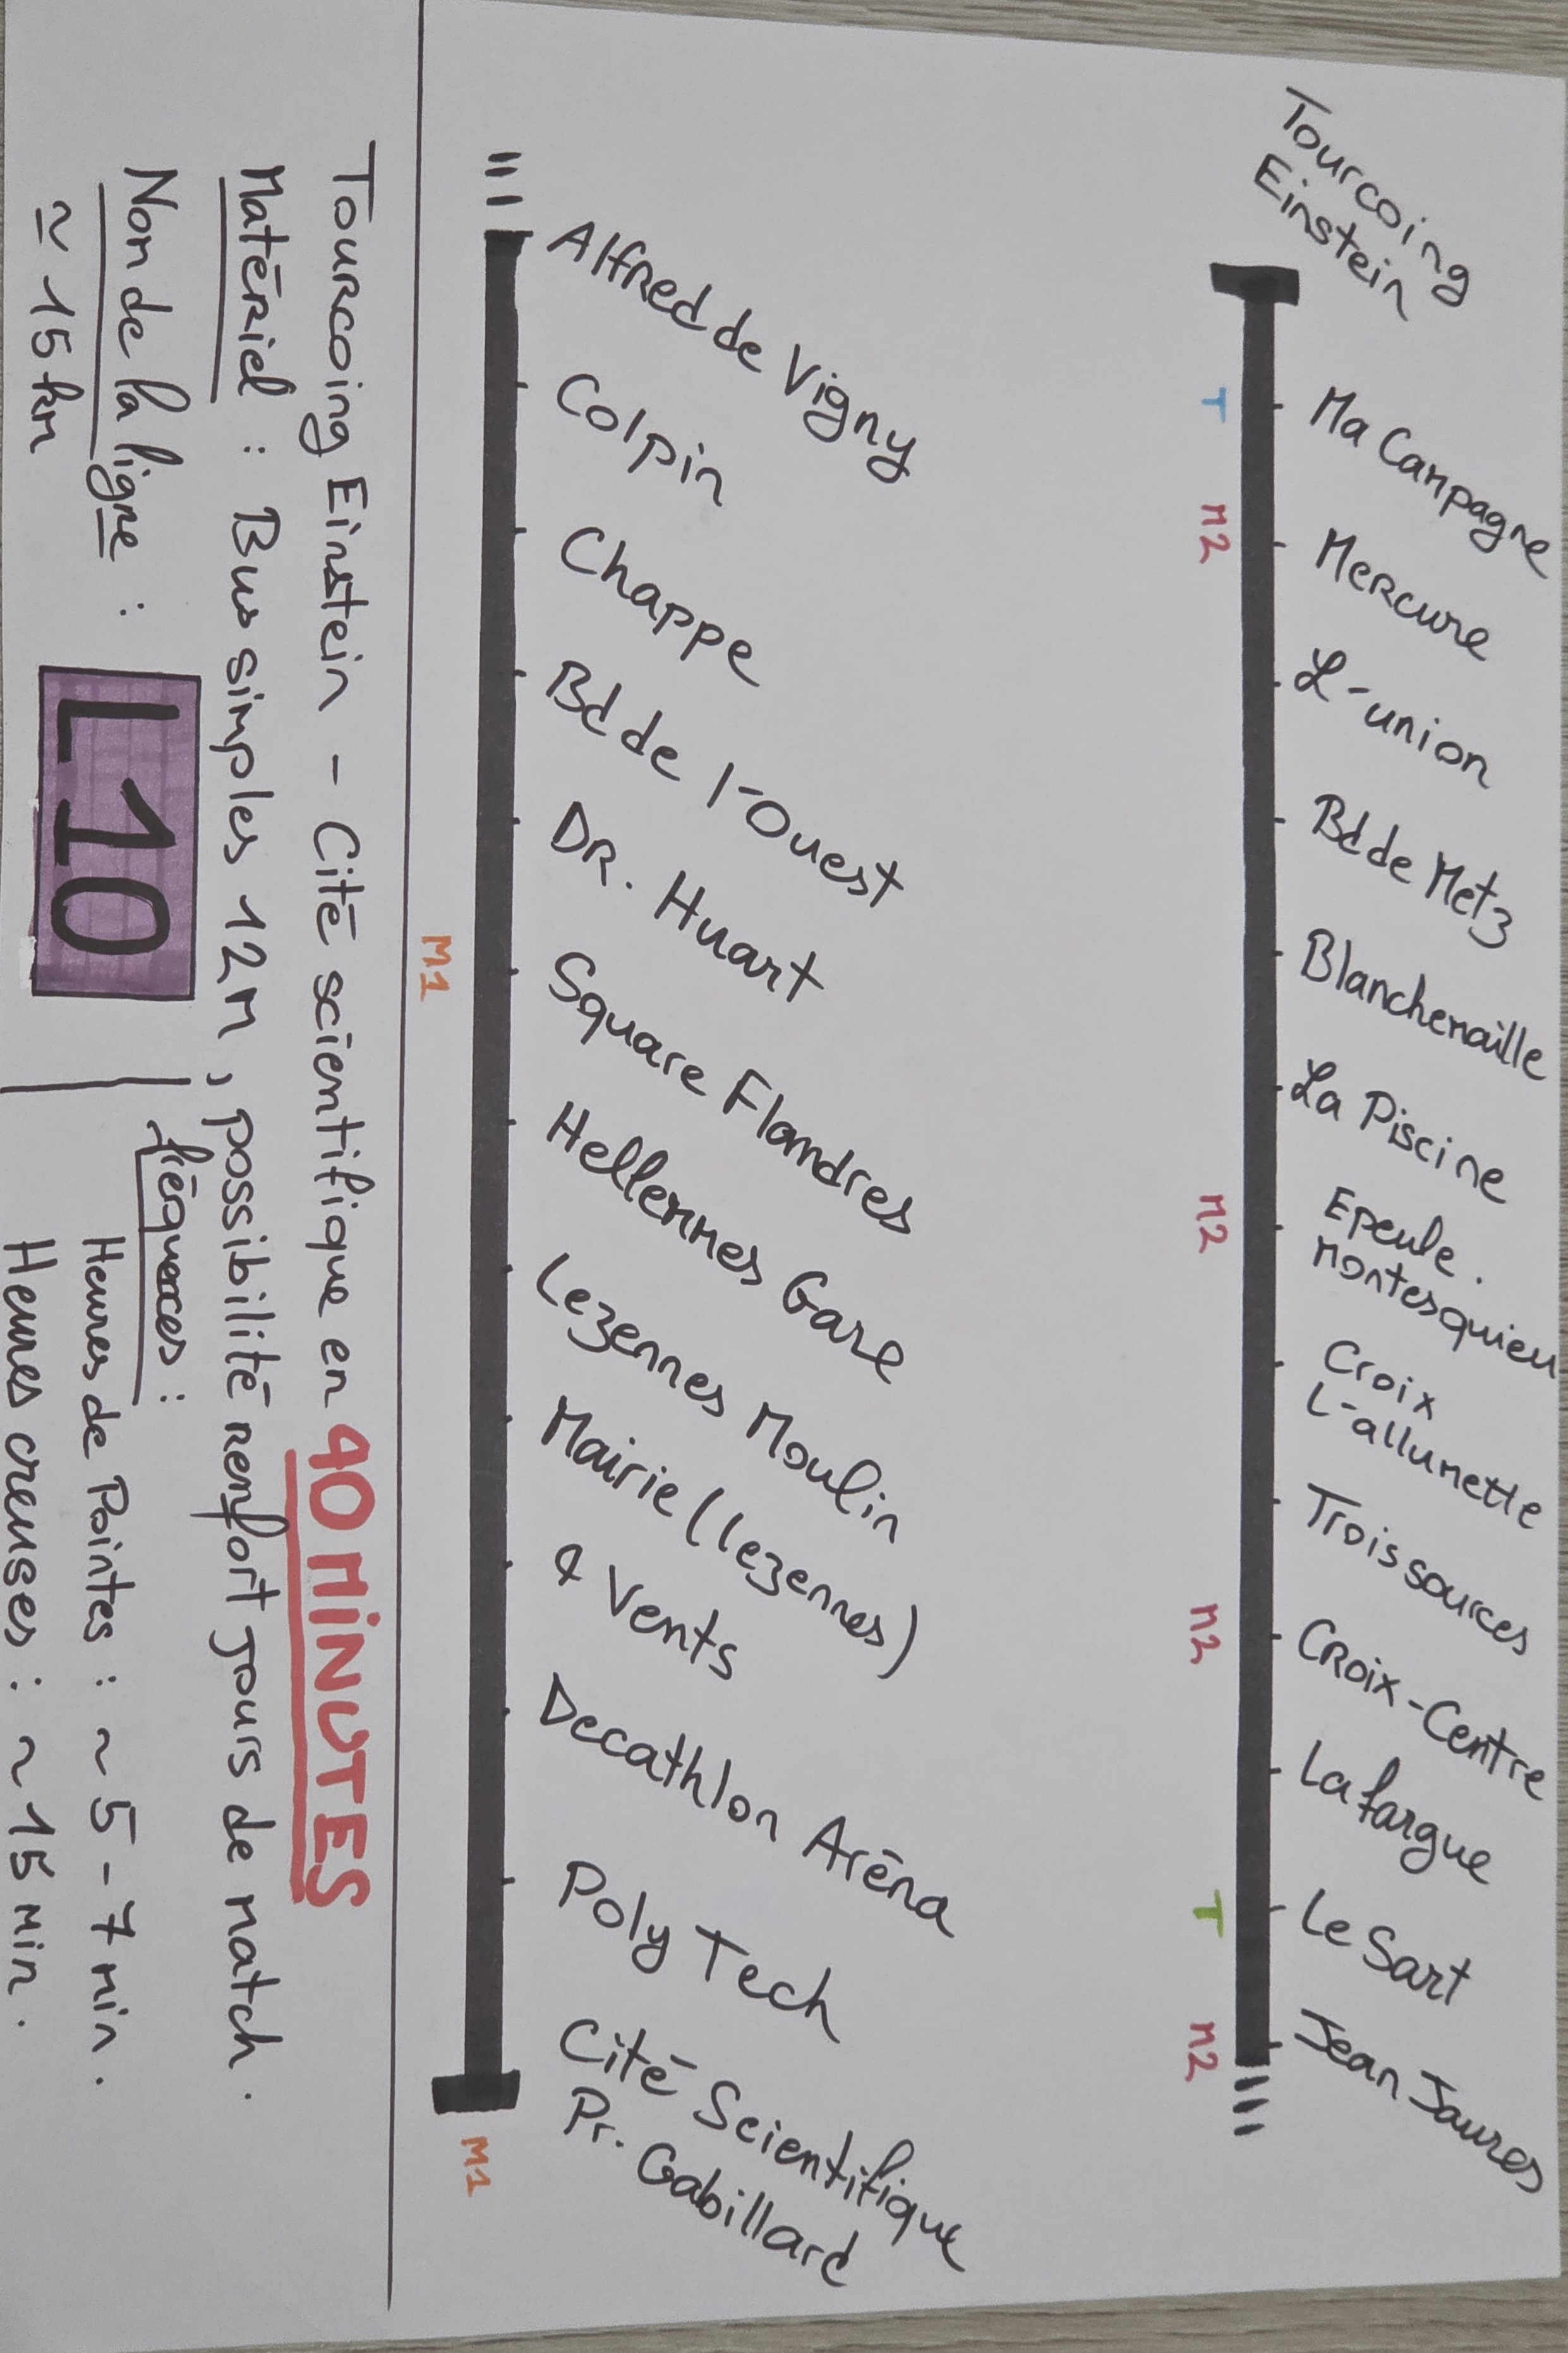 Tourcoing
Einstein
Ma Campagne
Mercure
L'union
Bd de Metz
Blanchemaille
La Piscine
Epeule.
Montesquieu
Croix
L'allumette
Trois sources
Croix-Centre
Lafargue
Le Sart
Jean Jaures
T
M2
M2
M2
T
M2
Alfred de Vigny
Colpin
Chappe
Bd de l'Ouest
DR. Huart
Square Flandres
Hellemmes Gare
Lezennes Moulin
Mairie (Lezennes)
4 Vents
Decathlon Aréna
Poly Tech
Cité Scientifique
Pr. Gabillard
M1
M1
Tourcoing Einstein - Cité scientifique en 40 MINUTES
Matériel : Bus simples 12m, possibilité renfort jours de match.
Nom de la ligne : L10
≃ 15 km
fréquences :
Heures de Pointes : ~ 5 - 7 min.
Heures creuses : ~ 15 min.